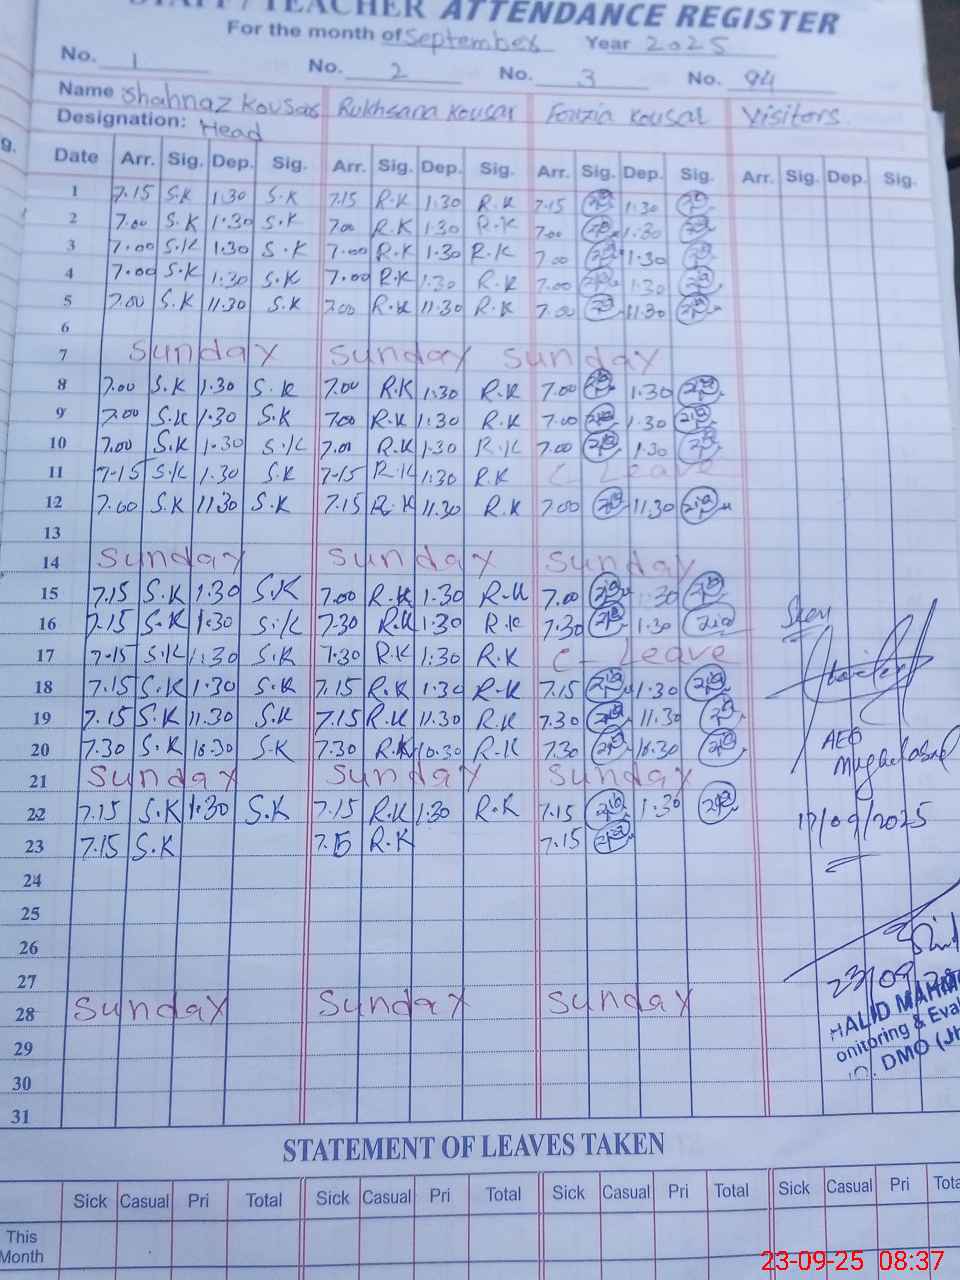 STAFF / TEACHER ATTENDANCE REGISTER
For the month of September Year 2025
No. 1 No. 2 No. 3 No. 94
Name Shahnaz Kousar Rukhsana Kousar Fouzia Kousar Visitors
Designation: Head
Date Arr. Sig. Dep. Sig. Arr. Sig. Dep. Sig. Arr. Sig. Dep. Sig. Arr. Sig. Dep. Sig.
1 7.15 S.K 1.30 S.K 7.15 R.K 1.30 R.K 7.15 1.30
2 7.00 S.K 1.30 S.K 7.00 R.K 1.30 R.K 7.00 1.30
3 7.00 S.K 1.30 S.K 7.00 R.K 1.30 R.K 7.00 1.30
4 7.00 S.K 1.30 S.K 7.00 R.K 1.30 R.K 7.00 1.30
5 7.00 S.K 11.30 S.K 7.00 R.K 11.30 R.K 7.00 11.30
6
7 Sunday Sunday Sunday
8 7.00 S.K 1.30 S.K 7.00 R.K 1.30 R.K 7.00 1.30
9 7.00 S.K 1.30 S.K 7.00 R.K 1.30 R.K 7.00 1.30
10 7.00 S.K 1.30 S.K 7.00 R.K 1.30 R.K 7.00 1.30
11 7.15 S.K 1.30 S.K 7.15 R.K 1.30 R.K C Leave
12 7.00 S.K 11.30 S.K 7.15 R.K 11.30 R.K 7.00 11.30
13
14 Sunday Sunday Sunday
15 7.15 S.K 1.30 S.K 7.00 R.K 1.30 R.K 7.00 1.30
16 7.15 S.K 1.30 S.K 7.30 R.K 1.30 R.K 7.30 1.30
17 7.15 S.K 1.30 S.K 7.30 R.K 1.30 R.K C- Leave
18 7.15 S.K 1.30 S.K 7.15 R.K 1.30 R.K 7.15 1.30
19 7.15 S.K 11.30 S.K 7.15 R.K 11.30 R.K 7.30 11.30
20 7.30 S.K 10.30 S.K 7.30 R.K 10.30 R.K 7.30 10.30
AEO
21 Sunday Sunday Sunday
22 7.15 S.K 1.30 S.K 7.15 R.K 1.30 R.K 7.15 1.30
17/09/2025
23 7.15 S.K 7.15 R.K 7.15
24
25
26
27
23/09
28 Sunday Sunday Sunday
HALID MAHM
onitoring & Eval
DMO (Jh
29
30
31
STATEMENT OF LEAVES TAKEN
Sick Casual Pri Total Sick Casual Pri Total Sick Casual Pri Total Sick Casual Pri Tota
This
Month
23-09-25 08:37